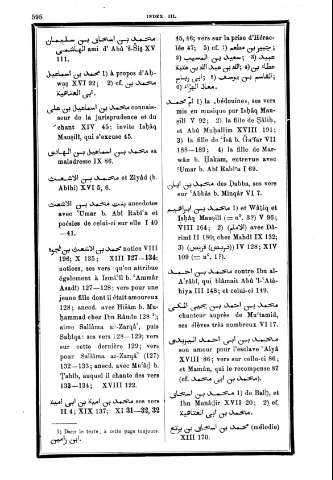 595 INDEX III.
محمد بن اسحاق بن سليمان
الهاشمى ami d'Abû 'l-Šîṣ XV
111.
محمد بن اسماعيل 1) à propos d'Aḥ-
waṣ XVI 92; 2) cf. محمد بن
ابى العتاهية
محمد بن اسماعيل بن على connais-
seur de la jurisprudence et du
chant XIV 45; invite Isḥâq
Mauṣilî, qui s'excuse 45.
محمد بن اسماعيل بن الهادى sa
maladresse IX 86.
محمد بن الاشعث et Ziyâd (b.
Abîhi) XVI 5, 6.
محمد بنت الاشعث anecdotes
avec 'Umar b. Abî Rabî'a et
poésies de celui-si elle I 40
—41.
محمد بن الاشعث بن notice VIII
196; X 135; XIII 127—134:
notices, ses vers qu'on attribue
également à Ismâ'îl b. 'Ammâr
Asadî) 127—128; vers pour une
jeune fille dont il était amoureux
128; anecd. avec Hišâm b. Mu-
ḥammad chez Ibn Râmîn 128 ¹;
aime Sallâma az-Zarqâ', puis
Saḥîqa: ses vers 128—129; vers
sur cette dernière 129; vers
pour Sallâma az-Zarqâ' (127)
132—133; anecd. avec Mu'âḏ b.
Ṭabîb, auquel il chante des vers
133—134; XVIII 122.
محمد بن امية بن ابى امية ses vers
II 4; XIX 137; XI 31—32, 32
1) Dans le texte, à cette page toujours:
ابن رامين.
45, 86; vers sur la prise d'Hérac-
lée 47; 5) cf. جبير بن مطعم;
عبيد; سعيد بن المسيب;
عطاء بن; عبد الله بن عتبة;
القاسم بن يوسف; ابى
معاذ الهراء
ام محمد 1) la bédouine, ses vers
mis en musique par Isḥâq Mau-
ṣilî V 92; 2) la fille de Ṣâliḥ,
et Abû Muḥallim XVIII 191;
3) la fille de 'Isâ b. Ǵa'far VII
188—189; 4) la fille de Mar-
wân b. Ḥakam, entrevue avec
'Umar b. Abî Rabî'a I 69.
محمد بن ابان des Ḍubba, ses vers
sur 'Abbâs b. Mirqâr VI 7.
محمد بن ابراهيم 1) et Wâṯiq et
Isḥâq Mauṣilî (= n°. 3?) V 95;
VIII 164; 2) (الامام) avec Dâ-
rimî I 180; chez Mahdî IX 132;
3) (قريص) IV 128; XIV
109 (= n°. 1?).
محمد بن احمد contre Ibn al-
A'râbî, qui blâmait Abû 'l-'Atâ-
hiya III 148; et celui-ci 149.
محمد بن احمد بن يحيى المكى
chanteur auprès de Mu'tamid,
ses élèves très nombreux VI 17.
محمد بن ابى احمد اليزيدى
son amour pour l'esclave 'Alyâ
XVIII 86; vers sur celle-ci 86;
et Mamûn, qui le récompense 87
(cf. محمد بن احمد).
محمد بن اسحاق 1) de Balḫ, et
Ibn Munâḏir XVII 20; 2) cf.
محمد بن ابى العتاهية
محمد بن اسحاق بن برثع (mélodie)
XIII 170.